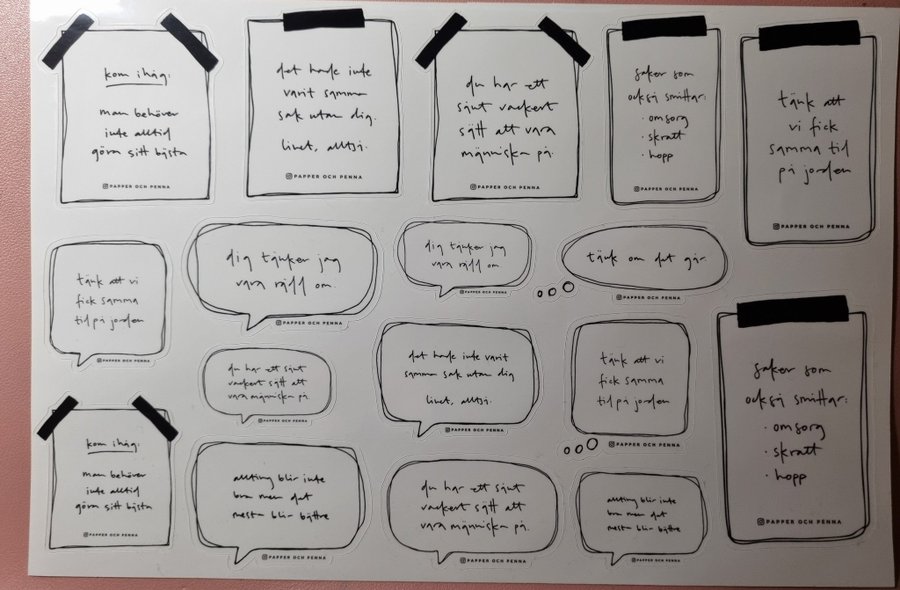 kom ihåg:
man behöver
inte alltid
göra sitt bästa
PAPPER OCH PENNA
det hade inte
varit samma
sak utan dig.
livet, alltså.
PAPPER OCH PENNA
du har ett
sånt vackert
sätt att vara
människa på.
PAPPER OCH PENNA
saker som
också smittar:
· omsorg
· skratt
· hopp
PAPPER OCH PENNA
tänk att
vi fick
samma tid
på jorden
PAPPER OCH PENNA
tänk att vi
fick samma
tid på jorden
PAPPER OCH PENNA
dig tänker jag
vara rädd om.
PAPPER OCH PENNA
dig tänker jag
vara rädd om.
PAPPER OCH PENNA
tänk om det går.
PAPPER OCH PENNA
du har ett sånt
vackert sätt att
vara människa på.
PAPPER OCH PENNA
det hade inte varit
samma sak utan dig
livet, alltså.
PAPPER OCH PENNA
tänk att vi
fick samma
tid på jorden
PAPPER OCH PENNA
saker som
också smittar:
· omsorg
· skratt
· hopp
PAPPER OCH PENNA
kom ihåg:
man behöver
inte alltid
göra sitt bästa
PAPPER OCH PENNA
allting blir inte
bra men det
mesta blir bättre
PAPPER OCH PENNA
du har ett sånt
vackert sätt att
vara människa på.
PAPPER OCH PENNA
allting blir inte
bra men det
mesta blir bättre
PAPPER OCH PENNA